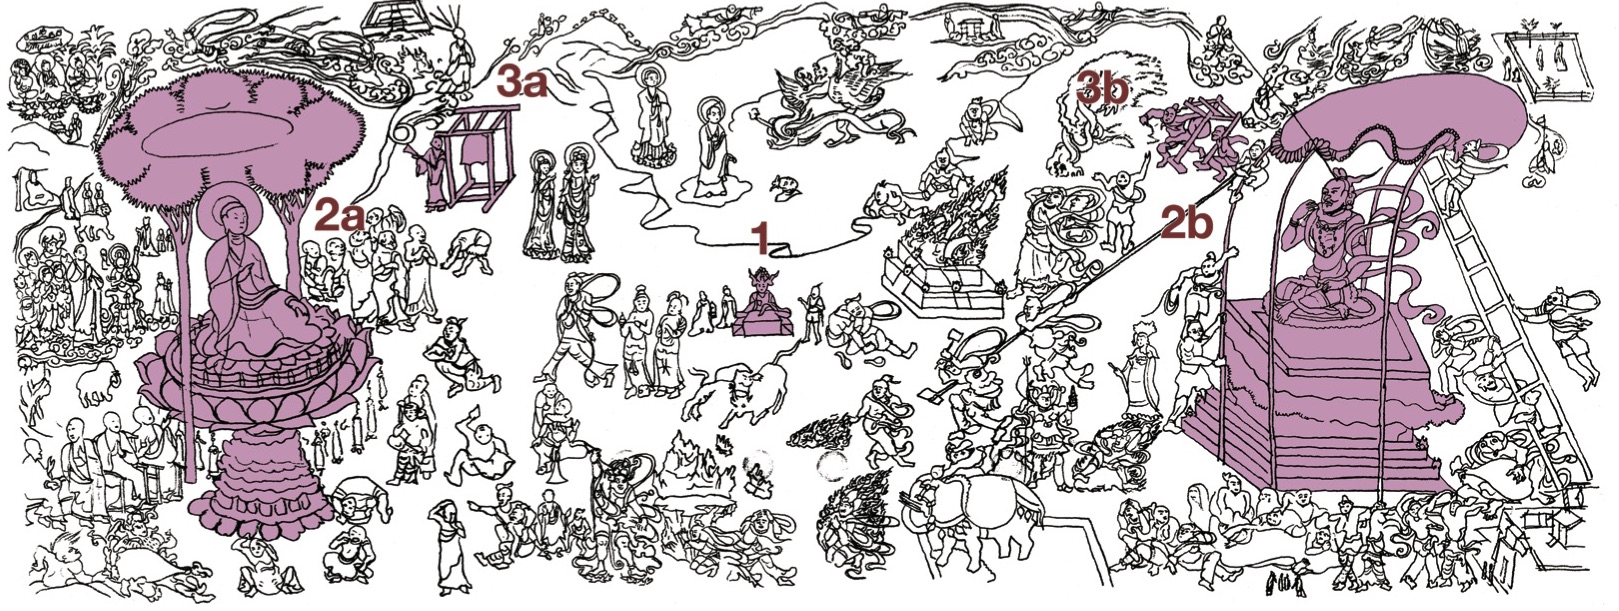 3a
3b
2a
2b
1